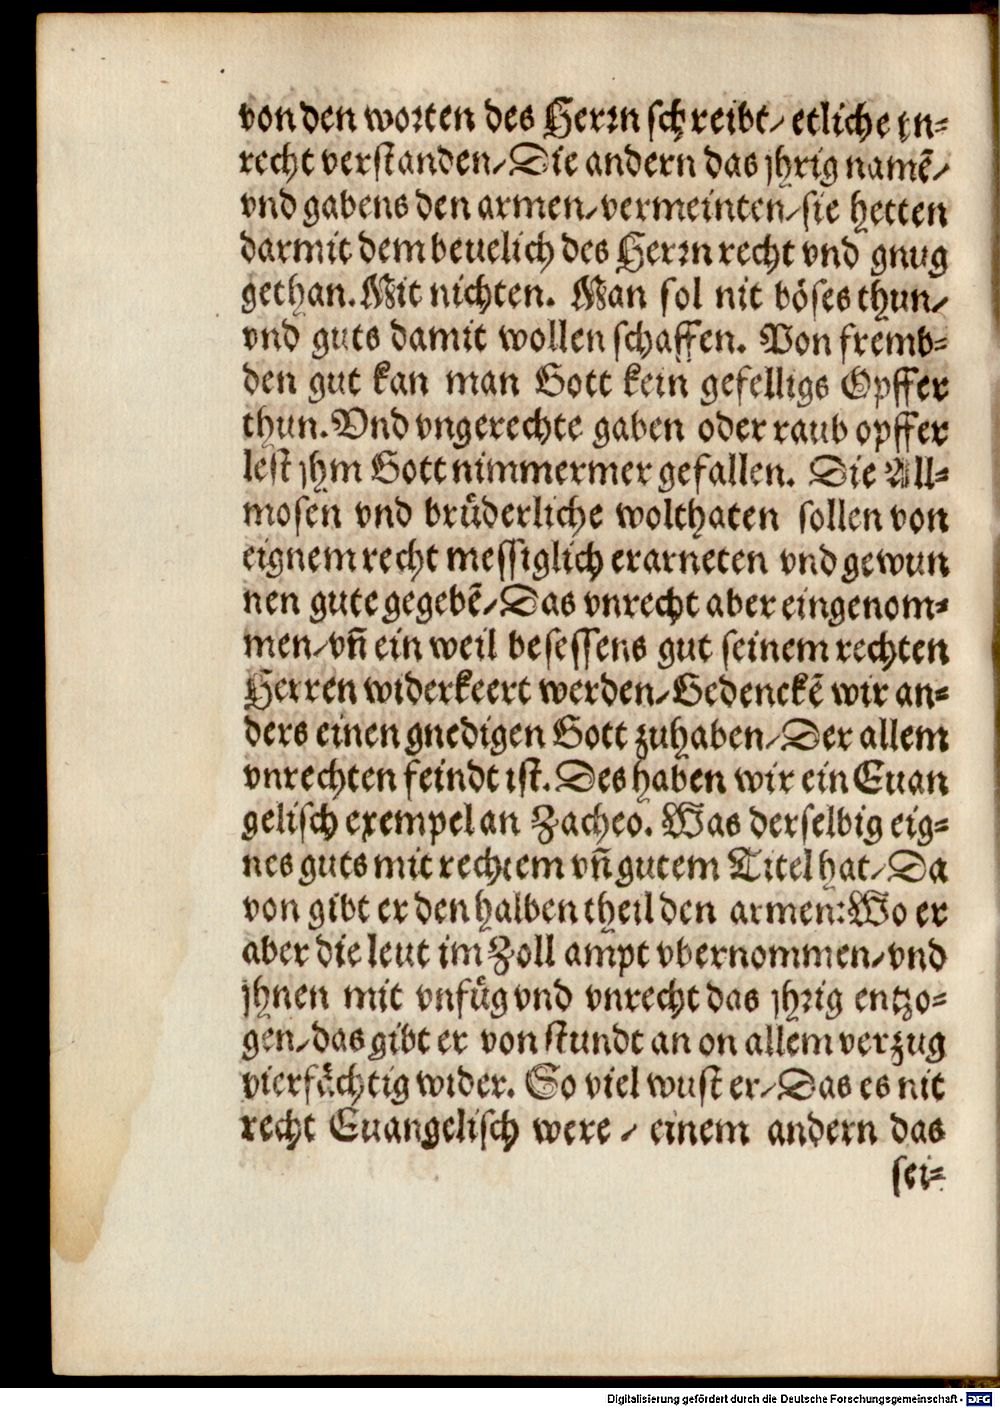 von den worten des Herrn schreibt/ etliche vn-
recht verstanden/ Die andern das jhrig namẽ/
vnd gabens den armen/ vermeinten/ sie hetten
darmit dem beuelich des Herrn recht vnd gnug
gethan. Mit nichten. Man sol nit böses thun/
vnd guts damit wollen schaffen. Von fremb-
den gut kan man Gott kein gefelligs Opffer
thun. Vnd vngerechte gaben oder raub opffer
lest jhm Gott nimmermer gefallen. Die All-
mosen vnd brüderliche wolthaten sollen von
eignem recht messiglich erarneten vnd gewun
nen gute gegebẽ/ Das vnrecht aber eingenom-
men/ vñ ein weil besessens gut seinem rechten
Herren widerkeert werden/ Gedenckẽ wir an-
ders einen gnedigen Gott zuhaben/ Der allem
vnrechten feindt ist. Des haben wir ein Euan
gelisch exempel an Zacheo. Was derselbig eig-
nes guts mit rechtem vñ gutem Titel hat/ Da
von gibt er den halben theil den armen: Wo er
aber die leut im Zoll ampt vbernommen/ vnd
jhnen mit vnfüg vnd vnrecht das jhrig entzo-
gen/ das gibt er von stundt an on allem verzug
vierfächtig wider. So viel wust er/ Das es nit
recht Euangelisch were / einem andern das
sei-
Digitalisierung gefördert durch die Deutsche Forschungsgemeinschaft - DFG